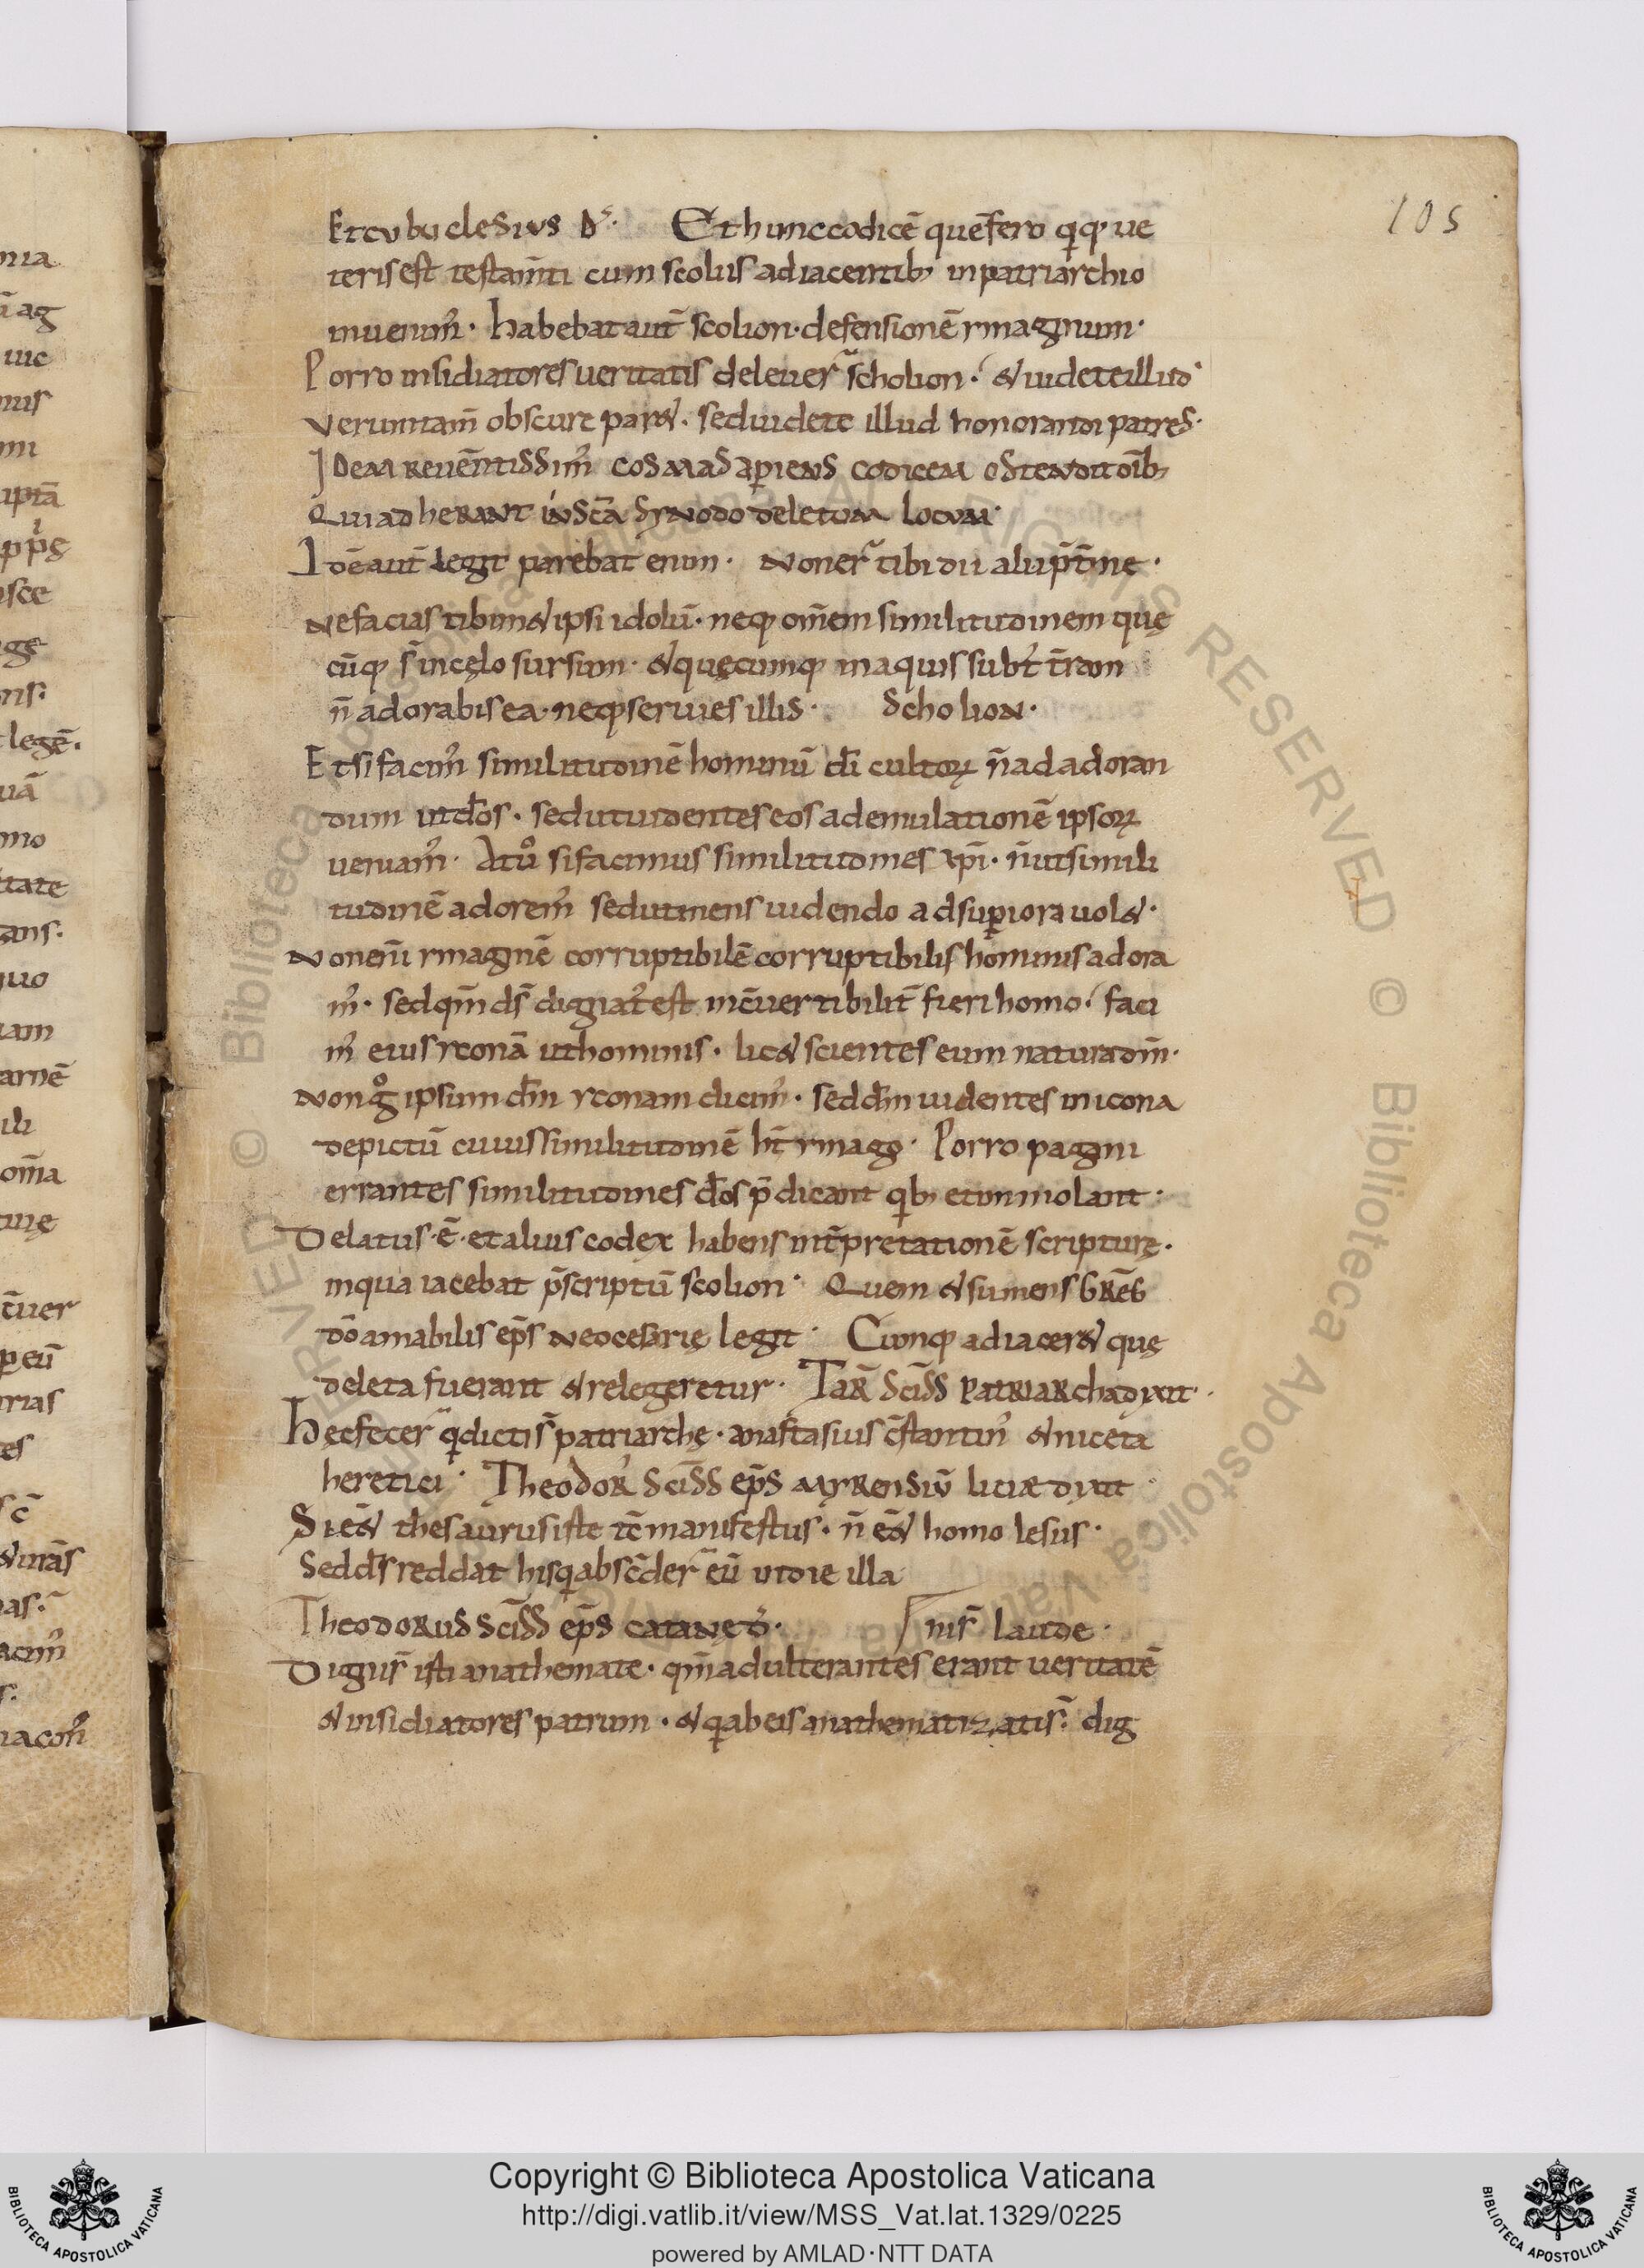 105
Et cubuclesius Ds· Et hunc codicē quē fero qiqꝫ ue
teris est testam̄ti cum scoliis adiacentibꝫ in patriarchio
inuenim᾽· habebat aut̄ scolion· defensionē ymaginum·
Porro insidiatores ueritatis deleuer̄ scholion· & uidete illud·
Veruntam̄ obscure par&· sed uidete illud honorandi patres·
Idem reuēntissim᾽ cosmas aperiens codicem ostendit oīb;
Qui adherant in sc̄a synodo deletum locum·
Idē aut̄ legit parebat enim· Non er̄t tibi dii alii p̄t̄ me·
Ne facias tibim& ipsi idolū· neqꝫ om̄em similitudinem quę
cūqꝫ s̄ in cęlo sursum· & quęcumqꝫ in aquis subt᾽ t̄ram
n̄ adorabis ea· neqꝫ seruies illis· Scholion·
Et si facim᾽ similitudinē hominū dī cultoꝝ n̄ ad adoran
dum ut d̄os· sed ut uidentes eos ad emulationē ipsoꝝ
ueniam᾽· At ů si facimus similitudines xp̄i· n̄ ut simili
tudinē adorem᾽ sed ut mens uidendo ad superiora uol&·
Non enī ymaginē corruptibilē corruptibilis hominis adora
m᾽· sed qm̄ ds̄ dignat᾽ est inc̄uertibilit̄ fieri homo· faci
m᾽ eius yconā ut hominis· lic& scientes eum natura dm̄·
Non g̊ ipsum dm̄ yconam dicim᾽· sed dm̄ uidentes in icona
depictū cuius similitudinē ht̄ ymago· Porro pagani
errantes similitudines d̄os p̄dicant qib; et immolant·
Delatus· ē· et alius codex habens int̄pretationē scripturę·
in qua iacebat p̄scriptū scolion· Quem & sumens Grēg
dō amabilis ep̄s neocesarię legit· Cumqꝫ adiacer& quę
deleta fuerant & relegeretur· Tar̄ sciss̄ patriarcha dixit·
Hęc fecer̄ q̄dicti s̄ patriarchę· anastasius c̄stantin᾽ & niceta
heretici· Theodor᾽ sciss̄ ep̄s myrensiū liciæ dixit
Si ēs& thesaurus iste tc̄ manifestus· n̄ ēs& homo lesus·
Sed ds̄ reddat his qi absc̄der̄ eū ut die illa
Theodorus sciss̄ ep̄s catanę d̄·
Digni s̄ isti anathemate· qm̄ adulterantes erant ueritatē
& insidiatores patrum· & qi ab eis anathematizati s̄· dig
ni s̄ laude·
Copyright © Biblioteca Apostolica Vaticana
http://digi.vatlib.it/view/MSS_Vat.lat.1329/0225
powered by AMLAD·NTT DATA
BIBLIOTECA APOSTOLICA VATICANA
BIBLIOTECA APOSTOLICA VATICANA